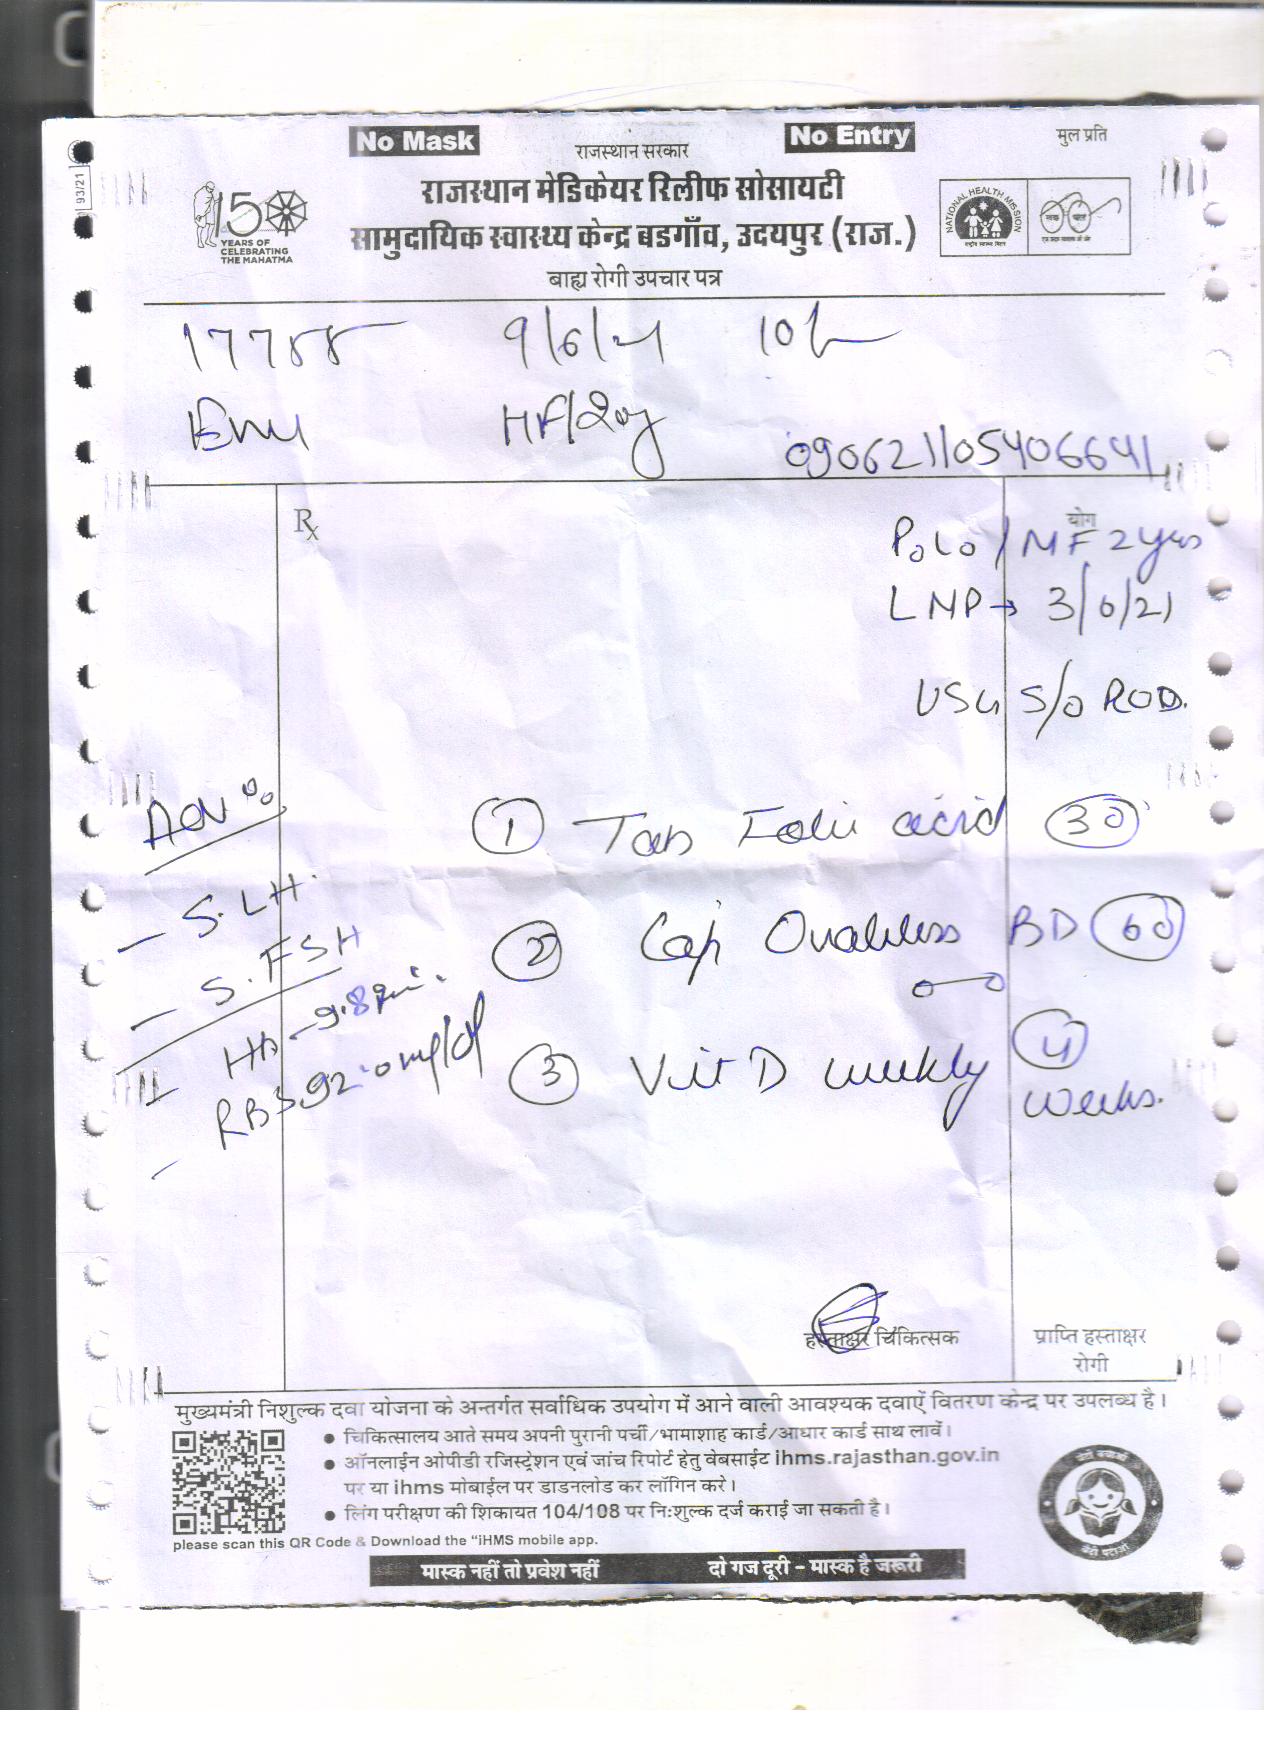 No Mask
राजस्थान सरकार
No Entry
मुल प्रति
93/21
राजस्थान मेडिकेयर रिलीफ सोसायटी
सामुदायिक स्वास्थ्य केन्द्र बडगाँव, उदयपुर (राज.)
बाह्य रोगी उपचार पत्र
150
YEARS OF
CELEBRATING
THE MAHATMA
NATIONAL HEALTH MISSION
17788 9/6/21
HF/20y
090621105406641
Rx
योग
P0L0 / MF 2yrs
LMP → 3/6/21
USG S/O PCOD.
Adv
① Tab Folic acid 30
- S. LH
- S. FSH
② Cap Ovabless BD 60
- Hb - 9.8 gm.
- RBS 92.0 mg/dl
③ Vit D weekly 4
weeks.
हस्ताक्षर चिकित्सक
प्राप्ति हस्ताक्षर
रोगी
मुख्यमंत्री निशुल्क दवा योजना के अन्तर्गत सर्वाधिक उपयोग में आने वाली आवश्यक दवाऐं वितरण केन्द्र पर उपलब्ध है।
● चिकित्सालय आते समय अपनी पुरानी पर्ची/भामाशाह कार्ड/आधार कार्ड साथ लावें।
● ऑनलाईन ओपीडी रजिस्ट्रेशन एवं जांच रिपोर्ट हेतु वेबसाईट ihms.rajasthan.gov.in
पर या ihms मोबाईल पर डाडनलोड कर लॉगिन करे।
● लिंग परीक्षण की शिकायत 104/108 पर निःशुल्क दर्ज कराई जा सकती है।
please scan this QR Code & Download the "iHMS mobile app.
मास्क नहीं तो प्रवेश नहीं दो गज दूरी – मास्क है जरूरी